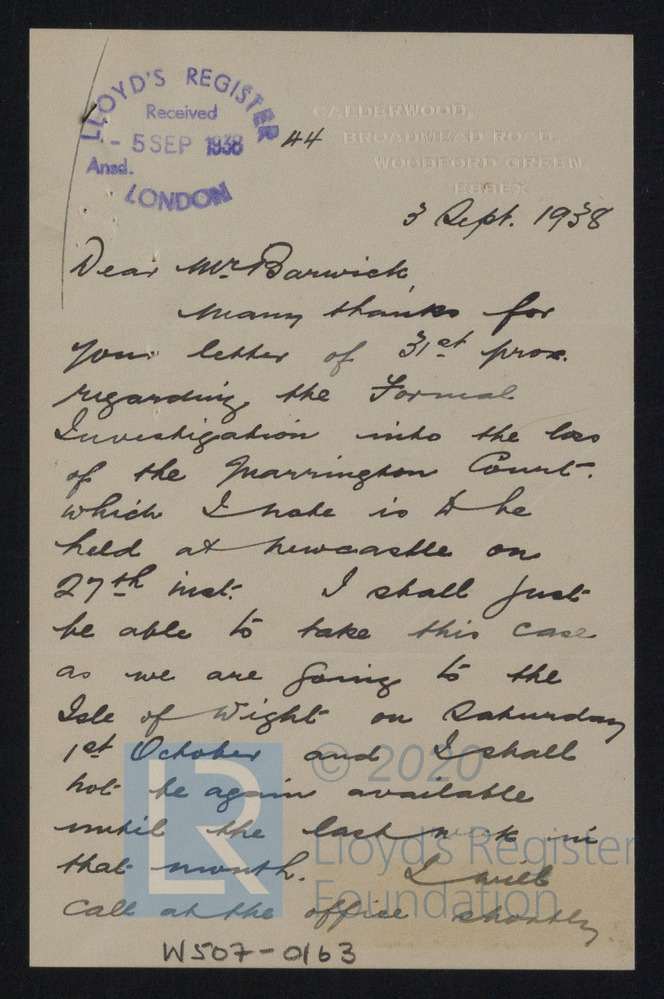 LLOYD'S REGISTER
Received
- 5 SEP 1938
Ansd.
LONDON
44
CALDERWOOD,
BROADMEAD ROAD,
WOODFORD GREEN,
ESSEX
3 Sept. 1938
Dear Mr Barwick,
Many thanks for
your letter of 31st prox.
regarding the Formal
Investigation into the loss
of the Marrington Court.
which I note is to be
held at Newcastle on
27th inst. I shall just
be able to take this case
as we are going to the
Isle of Wight on Saturday
1st October and I shall
not be again available
until the last week in
that month. I will
call at the office shortly
LR
© 2020
Lloyd's Register
Foundation
W507-0163